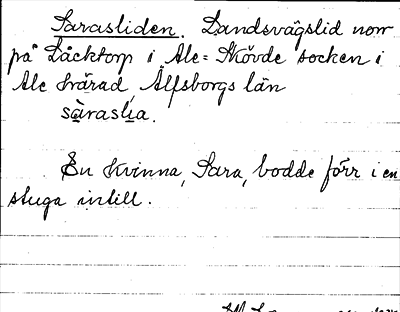 Sarasliden. Landsvägslid norr
på Låcktorp i Ale-Skövde socken i
Ale härad, Älfsborgs län
sàraslia.
En kvinna, Sara, bodde förr i en
stuga intill.